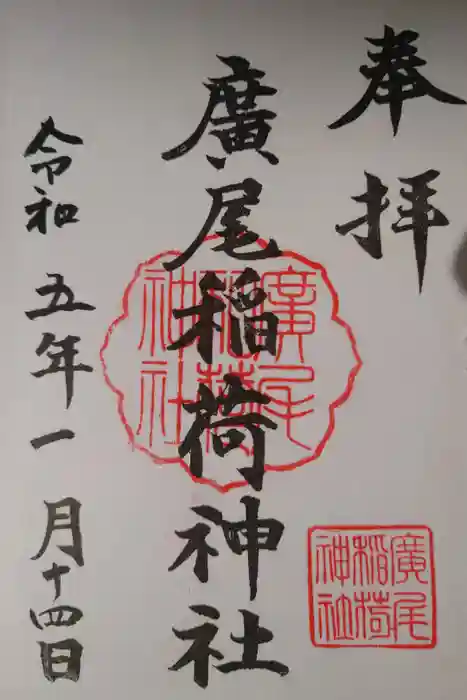 奉拝
廣尾稲荷神社
廣尾稲荷神社
廣尾稲荷神社
令和五年一月十四日